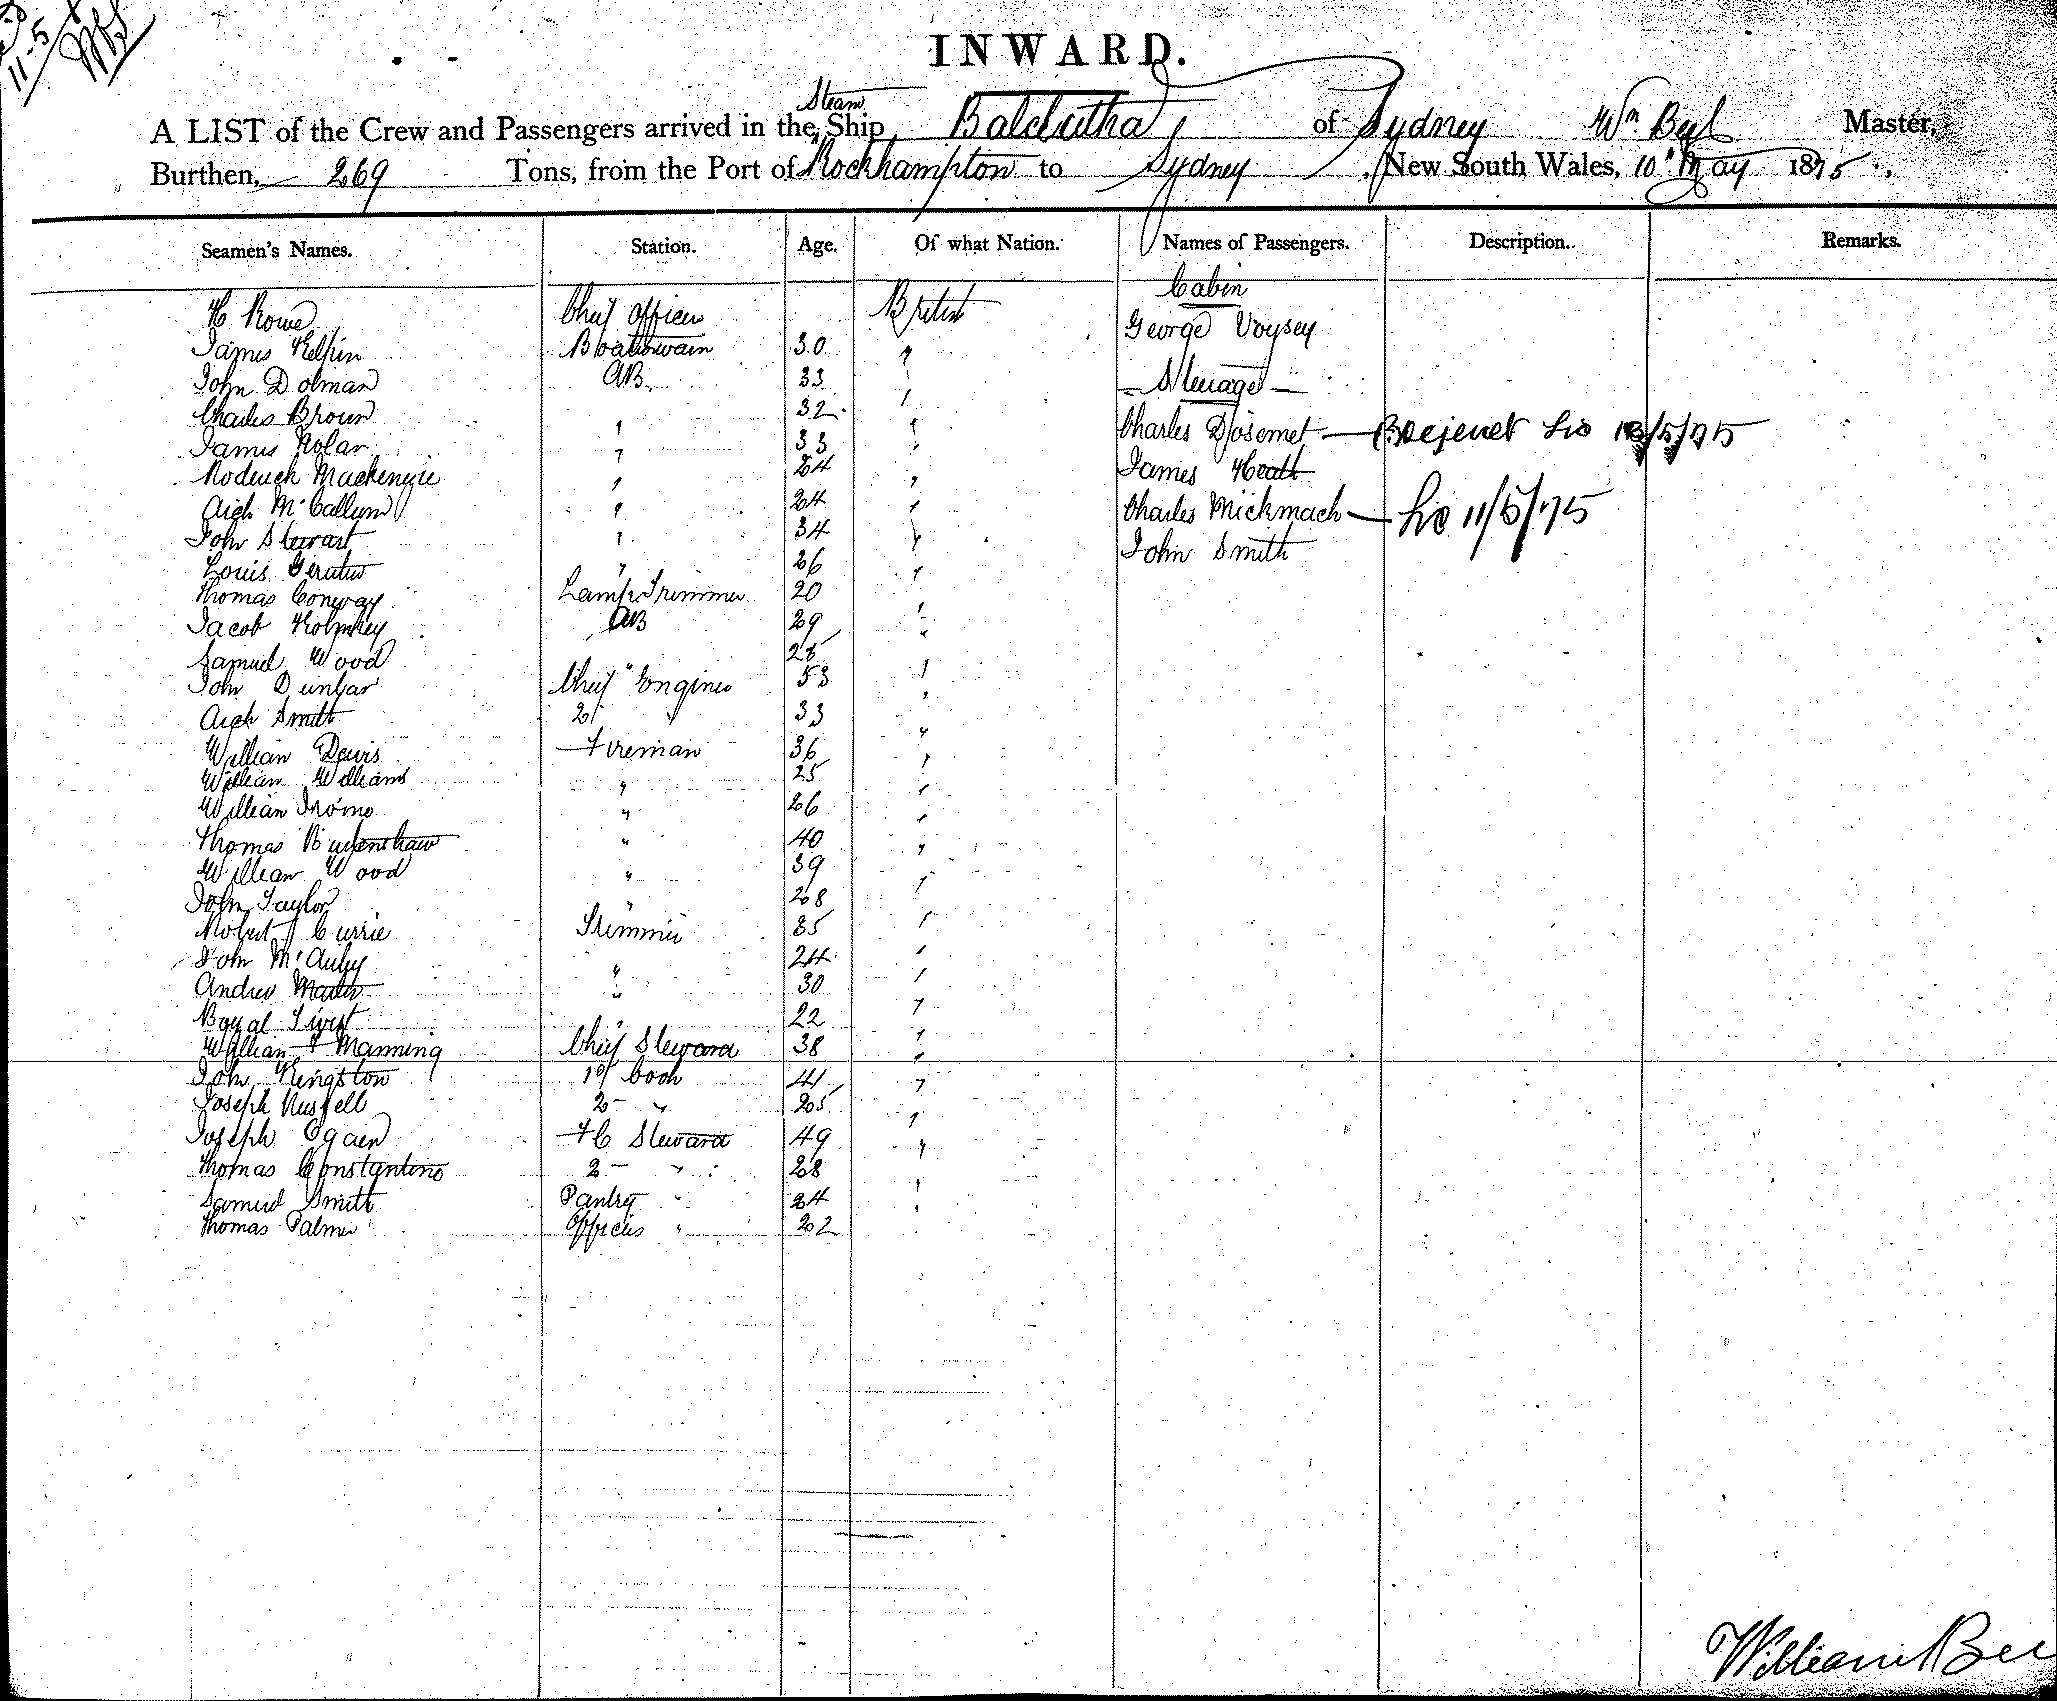 11-5
INWARD.
A LIST of the Crew and Passengers arrived in the Steam Ship Balclutha of Sydney Wm Beel Master,
Burthen, 269 Tons, from the Port of Rockhampton to Sydney, New South Wales, 10 May 1875.
Seamen's Names. Station. Age. Of what Nation. Names of Passengers. Description. Remarks.
Cabin
H Rowe Chief Officer British George Voysey
James Boatswain 30 "
John Dolman AB. 33 " Steerage
Charles Brown 32 "
James Nolan " 33 " Charles 
Roderick Mackenzie " 24 " James Heath
Arch McCallum " 24 " Charles Mickmack
John Stewart " 34 " John Smith
Louis " 26 "
Thomas Conway Lamp Trimmer 20 "
Jacob AB 29 "
Samuel Wood " 25 "
John Dunbar Chief Engineer 53 "
Arch Smith 2 " 33 "
William Davis Fireman 36 "
William Williams " 25 "
William " 26 "
Thomas " 40 "
William Wood " 39 "
John Taylor " 28 "
Robert Currie Trimmer 35 "
John McAuley " 24 "
Andrew " 30 "
" 22 "
William Manning Chief Steward 38 "
John Kingston 1st Cook 41 "
Joseph Russell 2 " 25 "
Joseph FC Steward 49 "
Thomas Constantine 2 " 28 "
Samuel Smith Pantry " 24 "
Thomas Palmer Officers " 22
William Bee